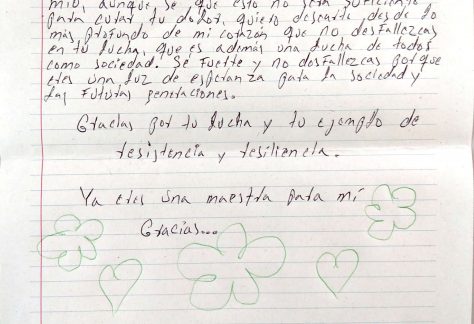 mío, aunque, se que esto no sera suficiente
para curar tu dolor, quiero desearte desde lo
más profundo de mi corazón que no desfallezcas
en tu lucha, que es además una lucha de todos
como sociedad. Se fuerte y no desfallezcas porque
eres una luz de esperanza para la sociedad y
las futuras generaciones.
Gracias por tu lucha y tu ejemplo de
resistencia y resiliencia.
Ya eres una maestra para mí
Gracias...